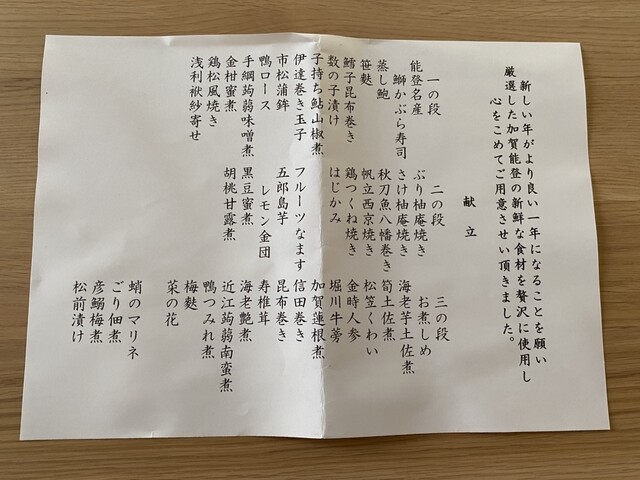 新しい年がより良い一年になることを願い
厳選した加賀能登の新鮮な食材を贅沢に使用し
心をこめてご用意させい頂きました。
献立
一の段
能登名産
鰤かぶら寿司
蒸し鮑
笹麩
鱈子昆布巻き
数の子漬け
子持ち鮎山椒煮
伊達巻き玉子
市松蒲鉾
鴨ロース
手綱蒟蒻味噌煮
金柑蜜煮
鶏松風焼き
浅利袱紗寄せ
二の段
ぶり柚庵焼き
さけ柚庵焼き
秋刀魚八幡巻き
帆立西京焼き
鶏つくね焼き
はじかみ
フルーツなます
五郎島芋
レモン金団
黒豆蜜煮
胡桃甘露煮
三の段
お煮しめ
海老芋土佐煮
筍土佐煮
松笠くわい
金時人参
堀川牛蒡
加賀蓮根煮
信田巻き
昆布巻き
寿椎茸
海老艶煮
近江蒟蒻南蛮煮
鴨つみれ煮
梅麩
菜の花
蛸のマリネ
ごり佃煮
彦鰯梅煮
松前漬け